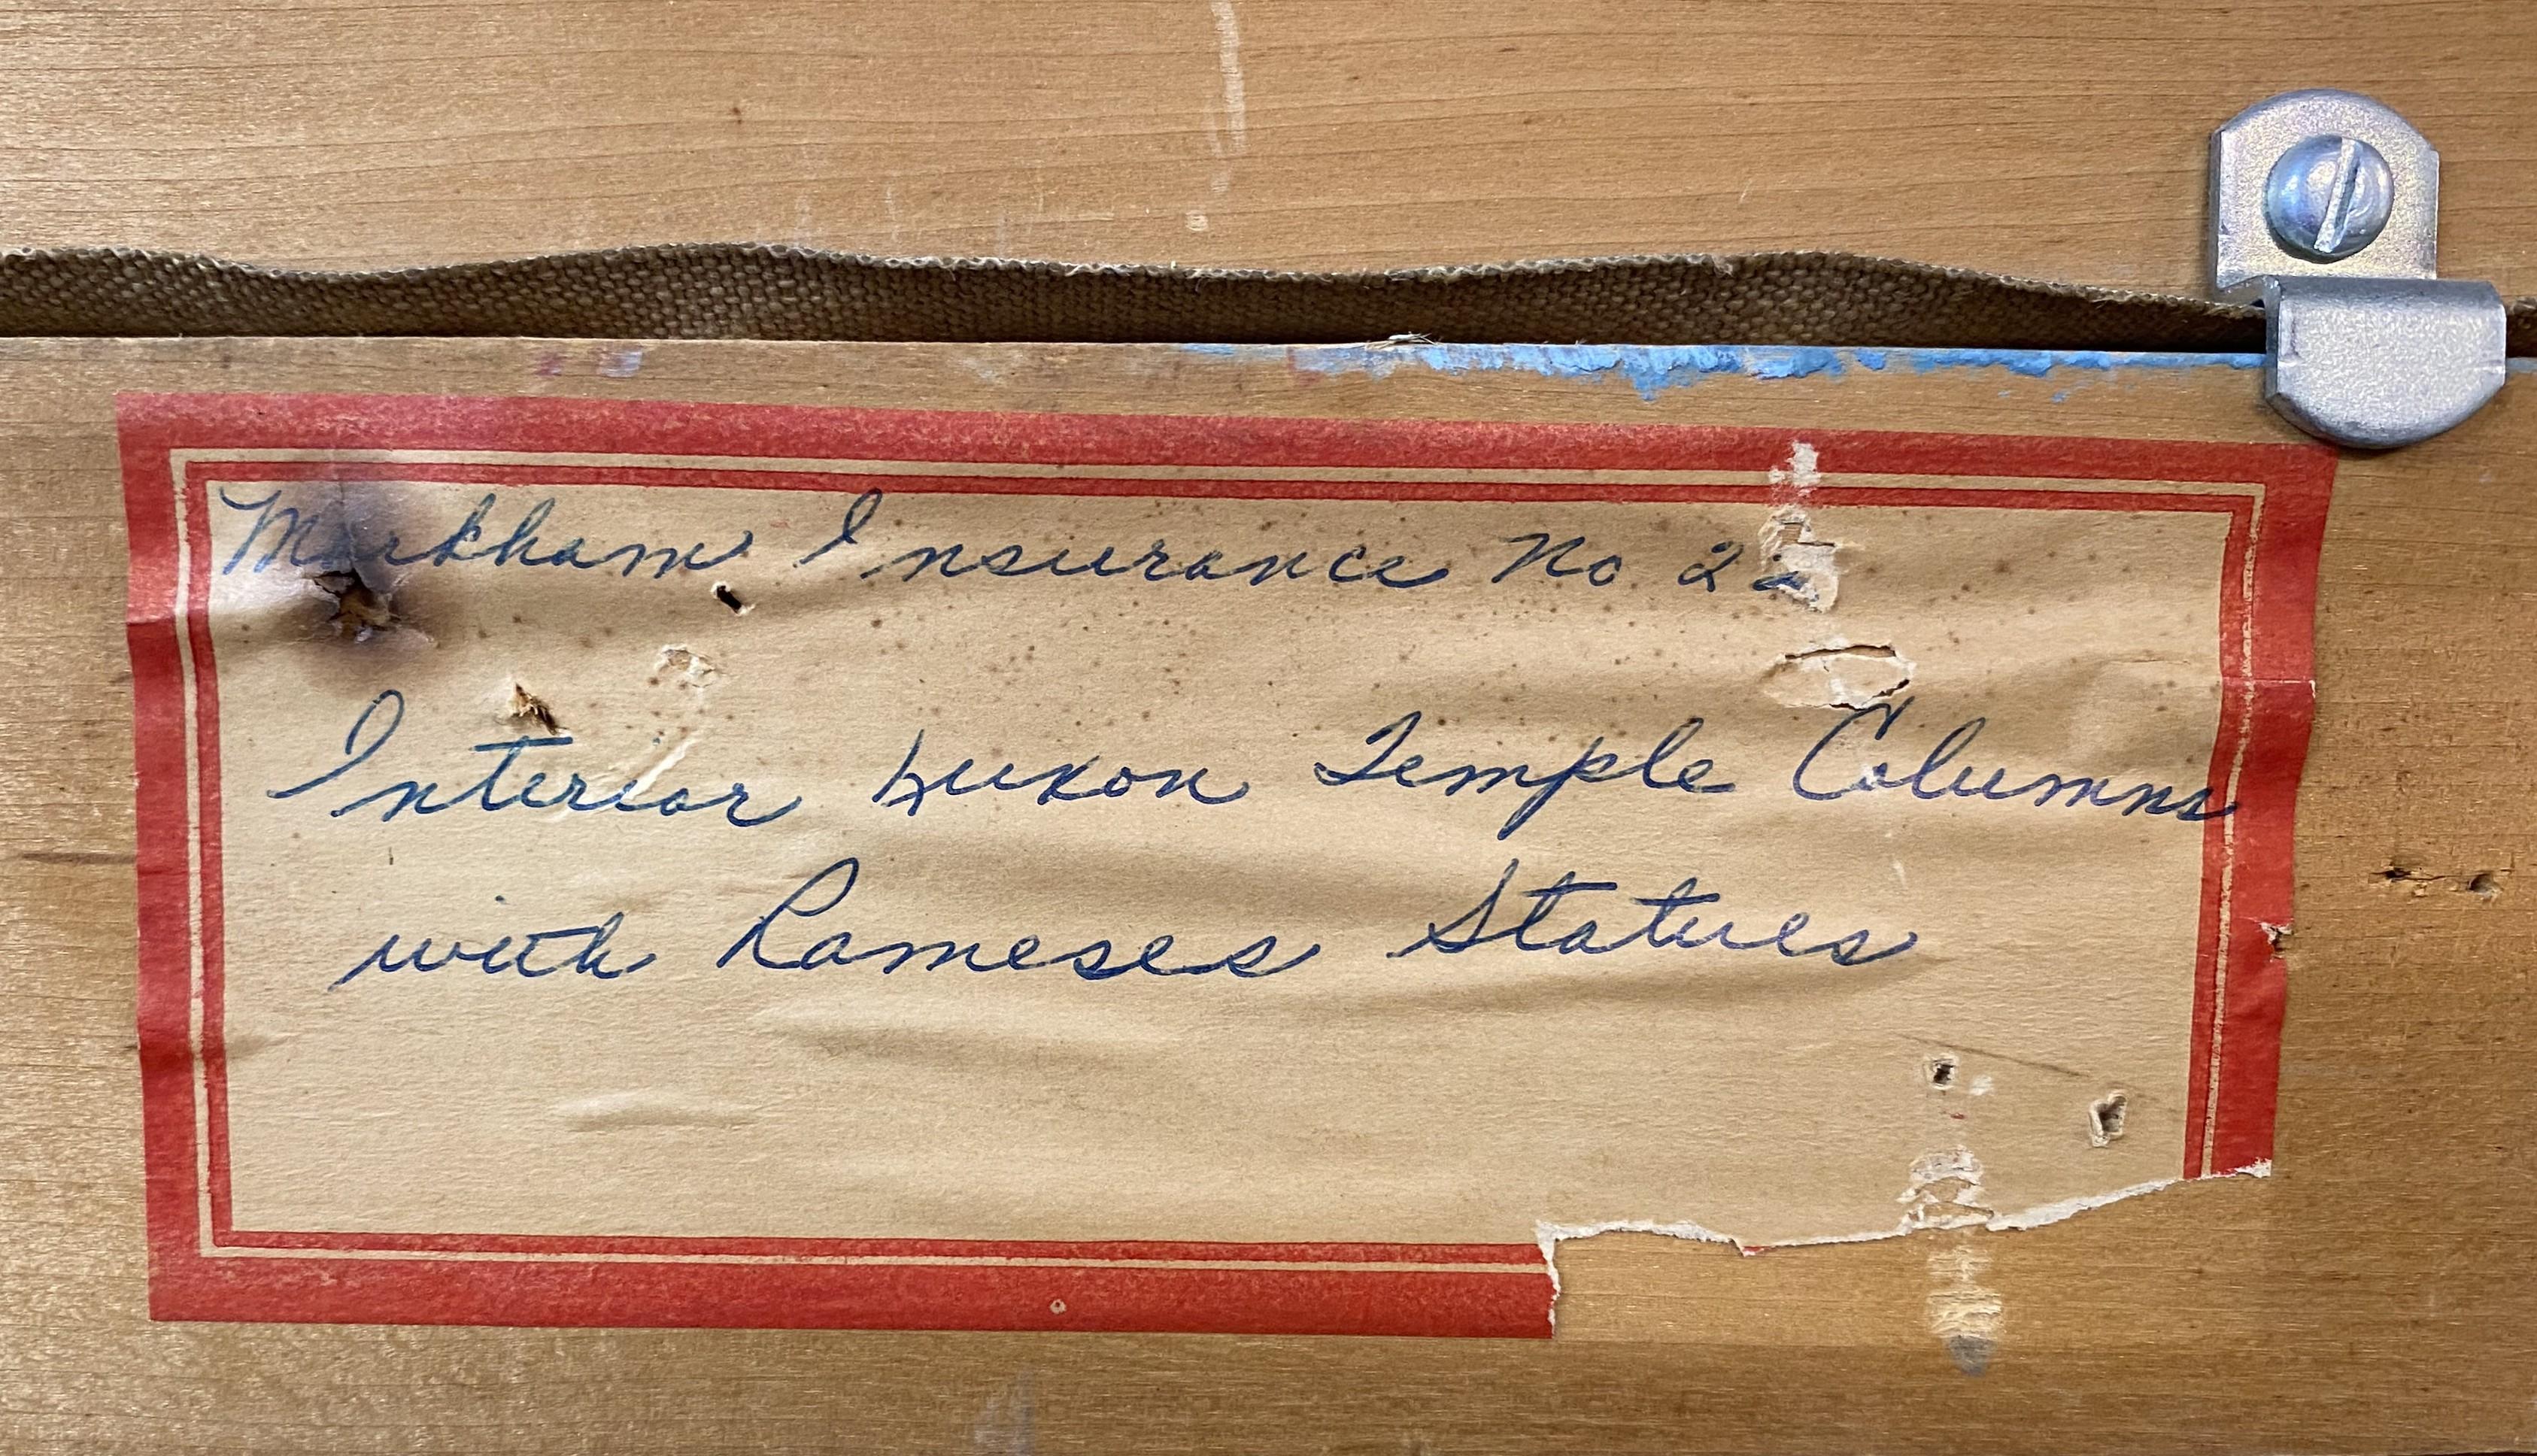 Markham Insurance No 22
Interior Luxon Temple Columns
with Rameses Statues